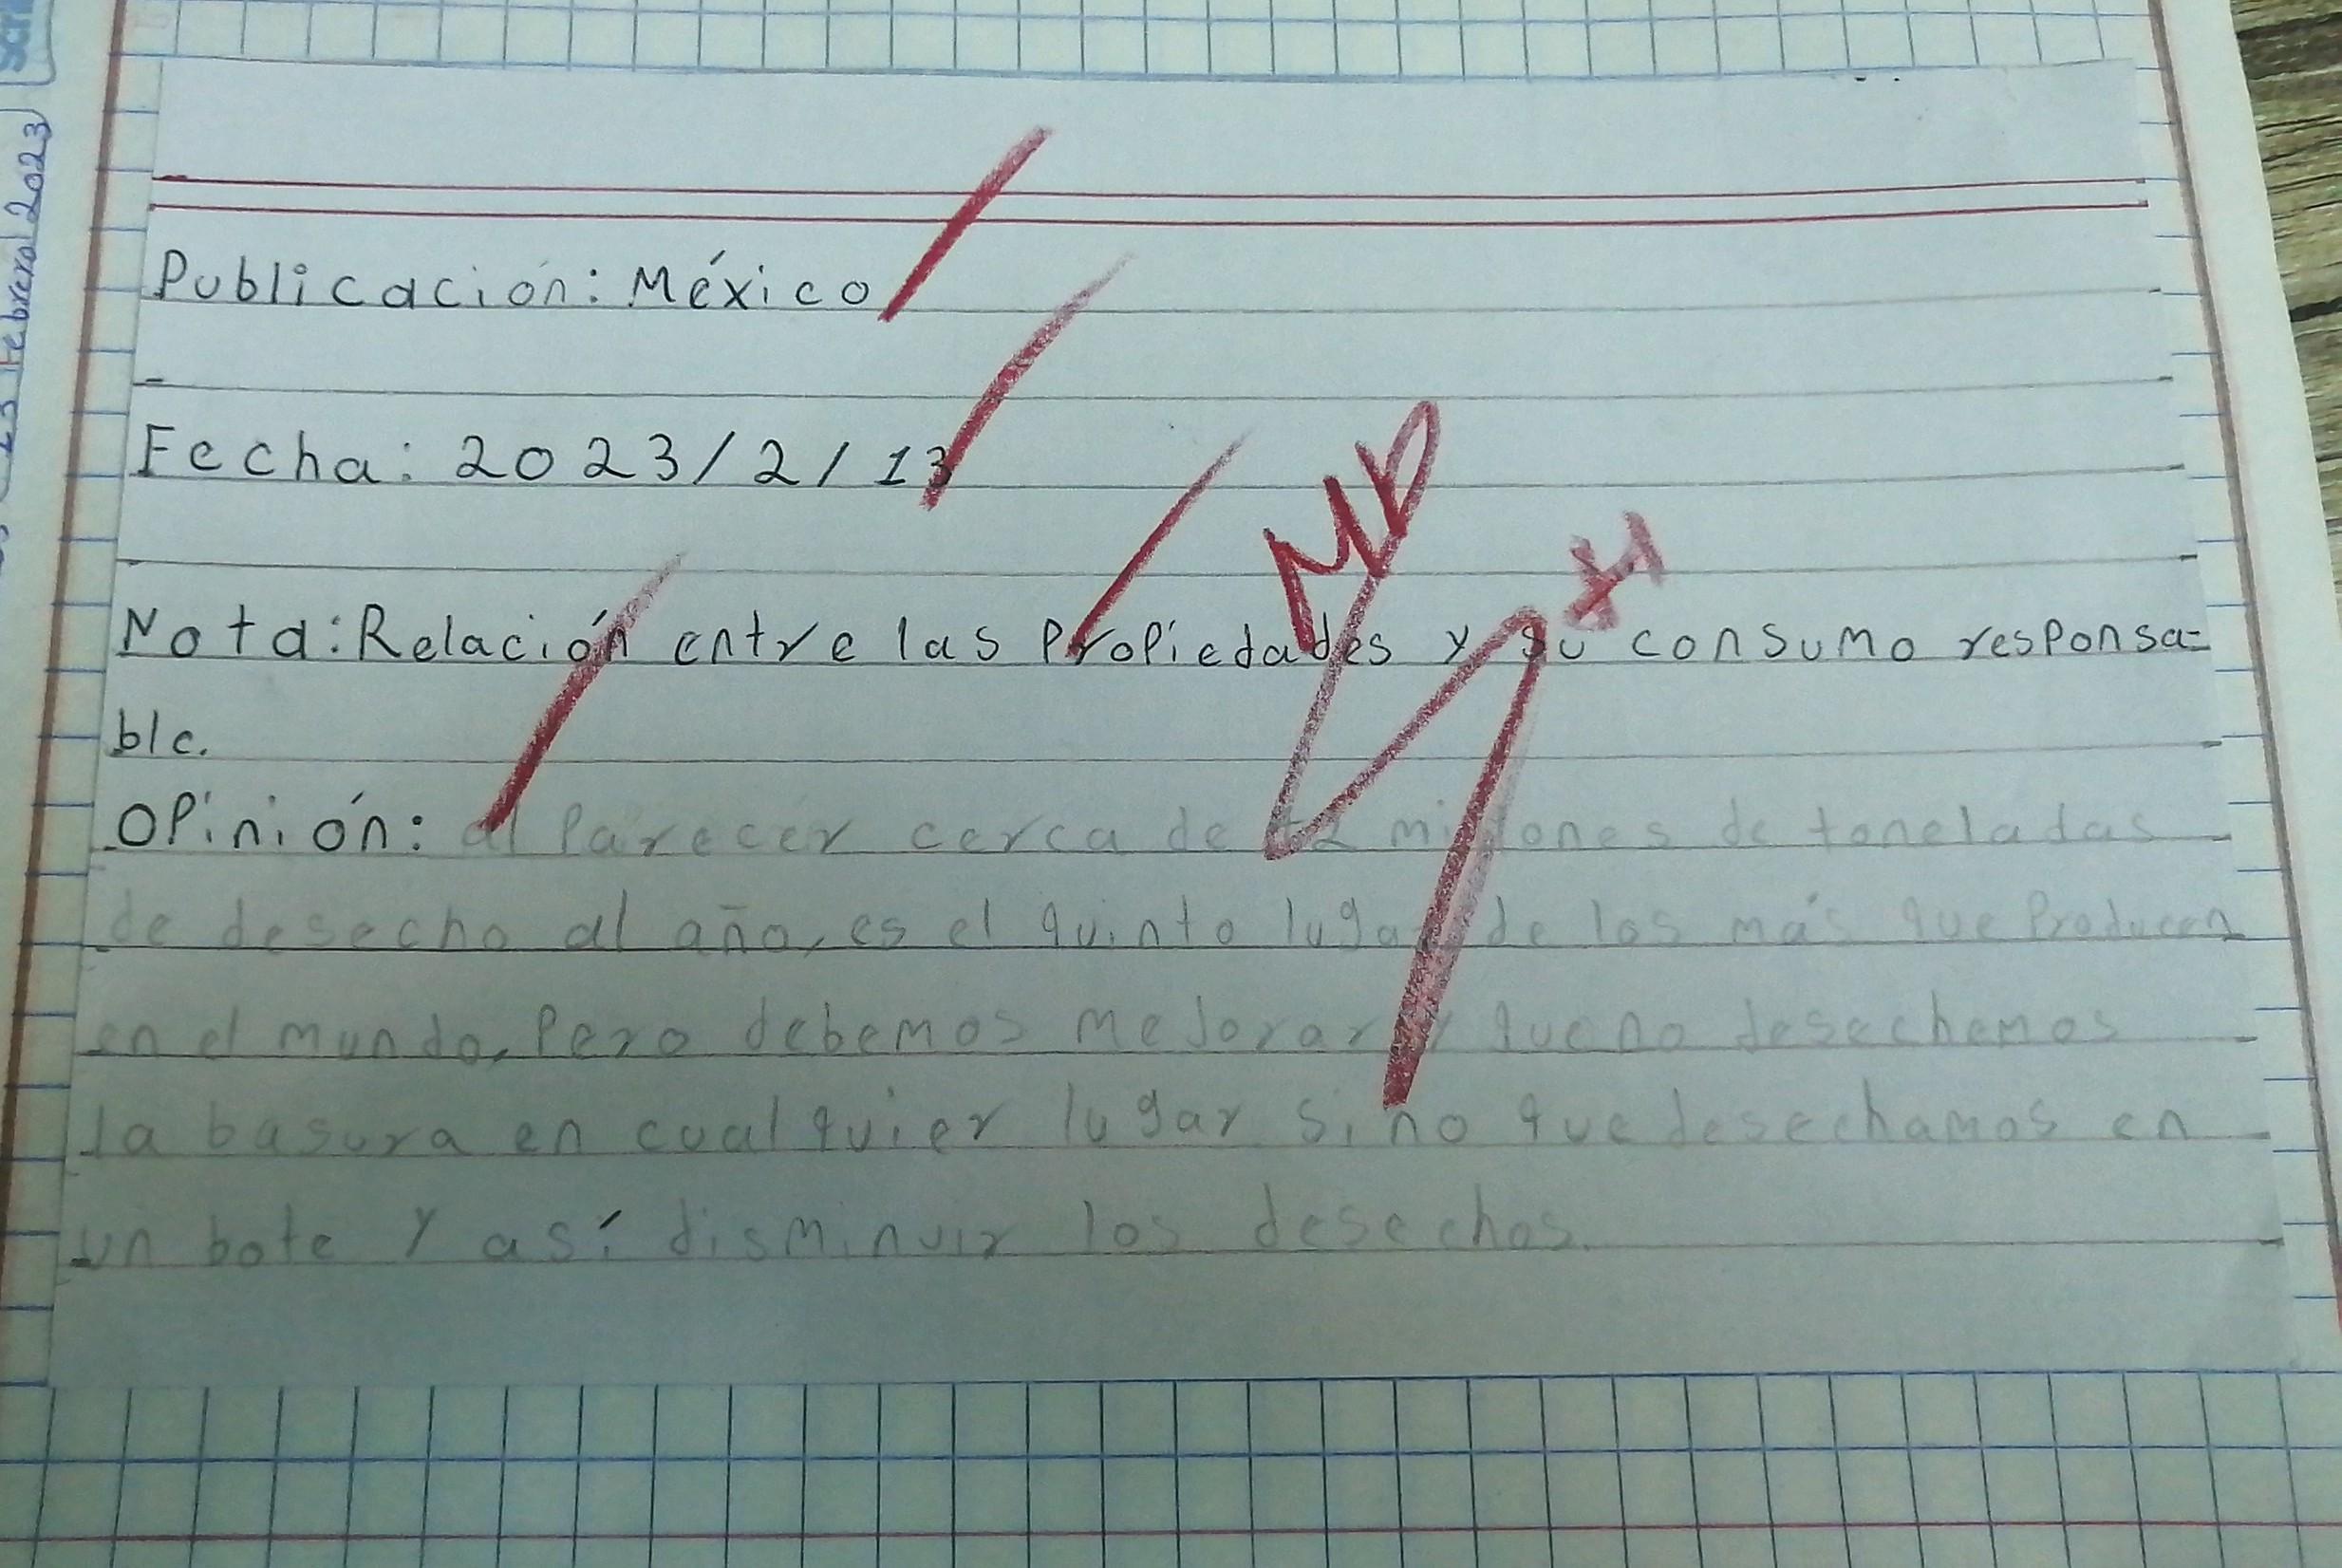 Publicación: México
Fecha: 2023/2/13
Nota: Relación entre las Propiedades y su consumo responsa-
ble.
Opinión: al Parecer cerca de millones de toneladas
de desecho al año, es el quinto lugar de los más que Producen
en el mundo, Pero debemos mejorar y que no desechemos
la basura en cualquier lugar sino que desechamos en
un bote y así disminuir los desechos.
febrero 2023